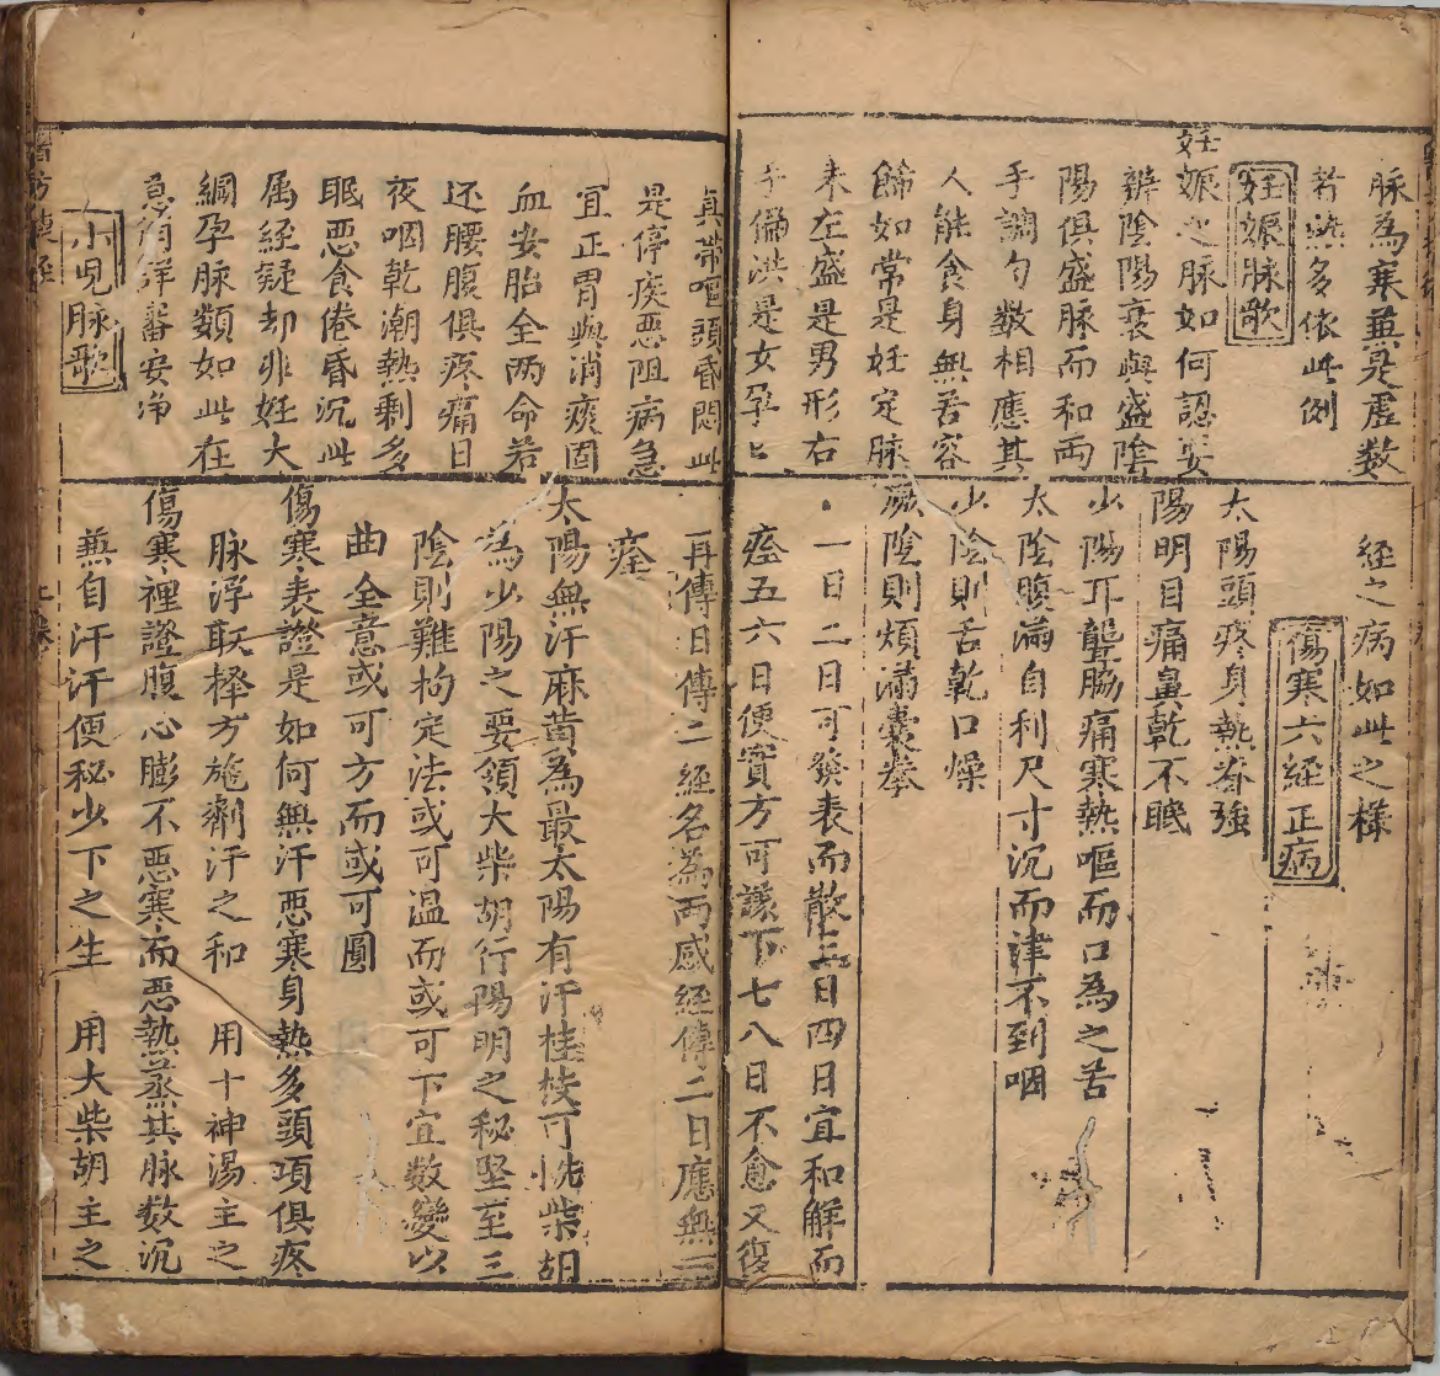 脉為寒兼是虚数
若熱多依此例
妊娠脉歌
妊娠之脉如何認安
辨陰陽衰與盛陰
陽俱盛脉而和兩
手調勻数相應其
人能食身無苦容
餙如常是妊定脉
来左盛是男形右
手偏洪是女孕
真帶嘔頭昏悶此
是停痰惡阻病急
宜正胃與消痰固
血安胎全两命若
还腰腹俱疼痛日
夜咽乾潮熱剩多
眠惡食倦昏沉此
属経疑却非妊大
綱孕脉類如此在
意消詳審安净
小児脉歌
経之病如此之様
傷寒六経正病
太陽頭疼身熱脊強
陽明目痛鼻乾不眠
少陽耳聾脇痛寒熱嘔而口為之苦
太陰腹滿自利尺寸沉而津不到咽
少陰則舌乾口燥
厥陰則煩滿囊拳
一日二日可發表而散三日四日宜和解而
痊五六日便實方可議下七八日不愈又復
再傳日傳二経名為兩感経傳二日應無一
痊
太陽無汗麻黄為最太陽有汗桂枝可怳柴胡
為少陽之要領大柴胡行陽明之秘堅至三
陰則難拘定法或可温而或可下宜数變以
曲全意或可方而或可圓
傷寒表證是如何無汗惡寒身熱多頭項俱疼
脉浮取擇方施劑汗之和　用十神湯主之
傷寒裡證腹心膨不惡寒而惡熱蒸其脉数沉
兼自汗汗便秘少下之生　用大柴胡主之